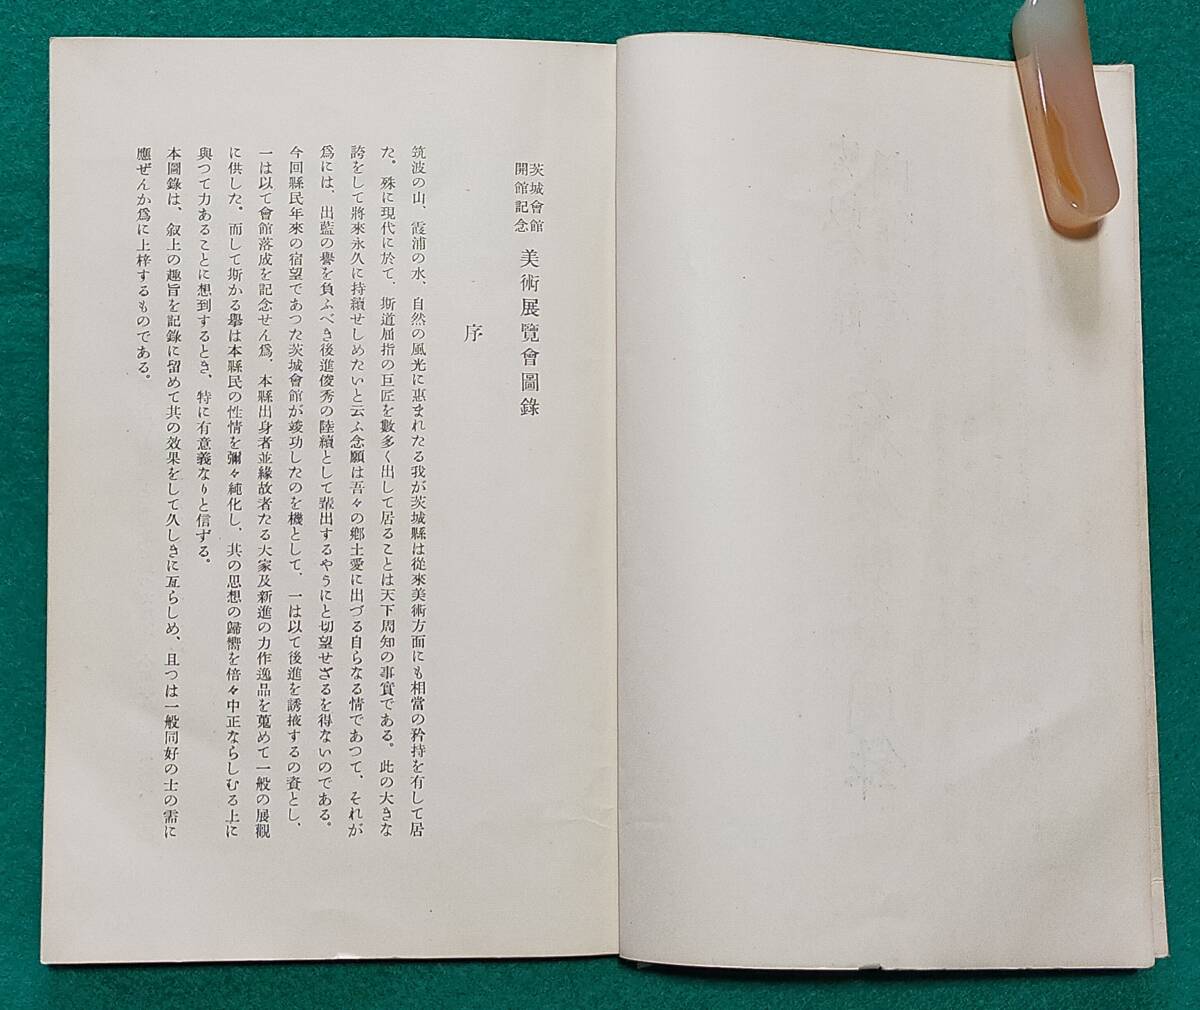 茨城會館
開館記念
美術展覽會圖錄
序
筑波の山、霞浦の水、自然の風光に惠まれたる我が茨城縣は從來美術方面にも相當の矜持を有して居
た。殊に現代に於て、斯道屈指の巨匠を數多く出して居ることは天下周知の事實である。此の大きな
誇をして將來永久に持續せしめたいと云ふ念願は吾々の鄕土愛に出づる自らなる情であつて、それが
爲には、出藍の譽を負ふべき後進俊秀の陸續として輩出するやうにと切望せざるを得ないのである。
今回縣民年來の宿望であつた茨城會館が竣功したのを機として、一は以て後進を誘掖するの資とし、
一は以て會館落成を記念せん爲、本縣出身者並緣故者たる大家及新進の力作逸品を蒐めて一般の展觀
に供した。而して斯かる擧は本縣民の性情を彌々純化し、其の思想の歸嚮を倍々中正ならしむる上に
與つて力あることに想到するとき、特に有意義なりと信ずる。
本圖錄は、叙上の趣旨を記錄に留めて其の效果をして久しきに亙らしめ、且つは一般同好の士の需に
應ぜんか爲に上梓するものである。